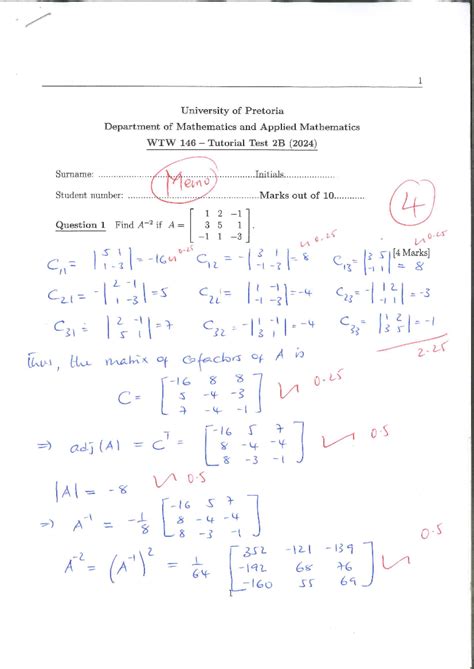 1
University of Pretoria
Department of Mathematics and Applied Mathematics
WTW 146 – Tutorial Test 2B (2024)
Surname: ........................................Initials....................
Memo
Student number: ........................................Marks out of 10...........
4
Question 1 Find A⁻² if A = [1 2 −1; 3 5 1; −1 1 −3].
[4 Marks]
C₁₁ = |5 1; 1 -3| = -16 0.25 C₁₂ = -|3 1; -1 -3| = 8 0.25 C₁₃ = |3 5; -1 1| = 8 0.25
C₂₁ = -|2 -1; 1 -3| = 5 C₂₂ = |1 -1; -1 -3| = -4 C₂₃ = -|1 2; -1 1| = -3
C₃₁ = |2 -1; 5 1| = 7 C₃₂ = -|1 -1; 3 1| = -4 C₃₃ = |1 2; 3 5| = -1
2.25
Thus, the matrix of cofactors of A is
C = [-16 8 8; 5 -4 -3; 7 -4 -1] 0.25
⇒ adj(A) = Cᵀ = [-16 5 7; 8 -4 -4; 8 -3 -1] 0.5
|A| = -8 0.5
⇒ A⁻¹ = -1/8 [-16 5 7; 8 -4 -4; 8 -3 -1]
A⁻² = (A⁻¹)² = 1/64 [352 -121 -139; -192 68 76; -160 55 69] 0.5